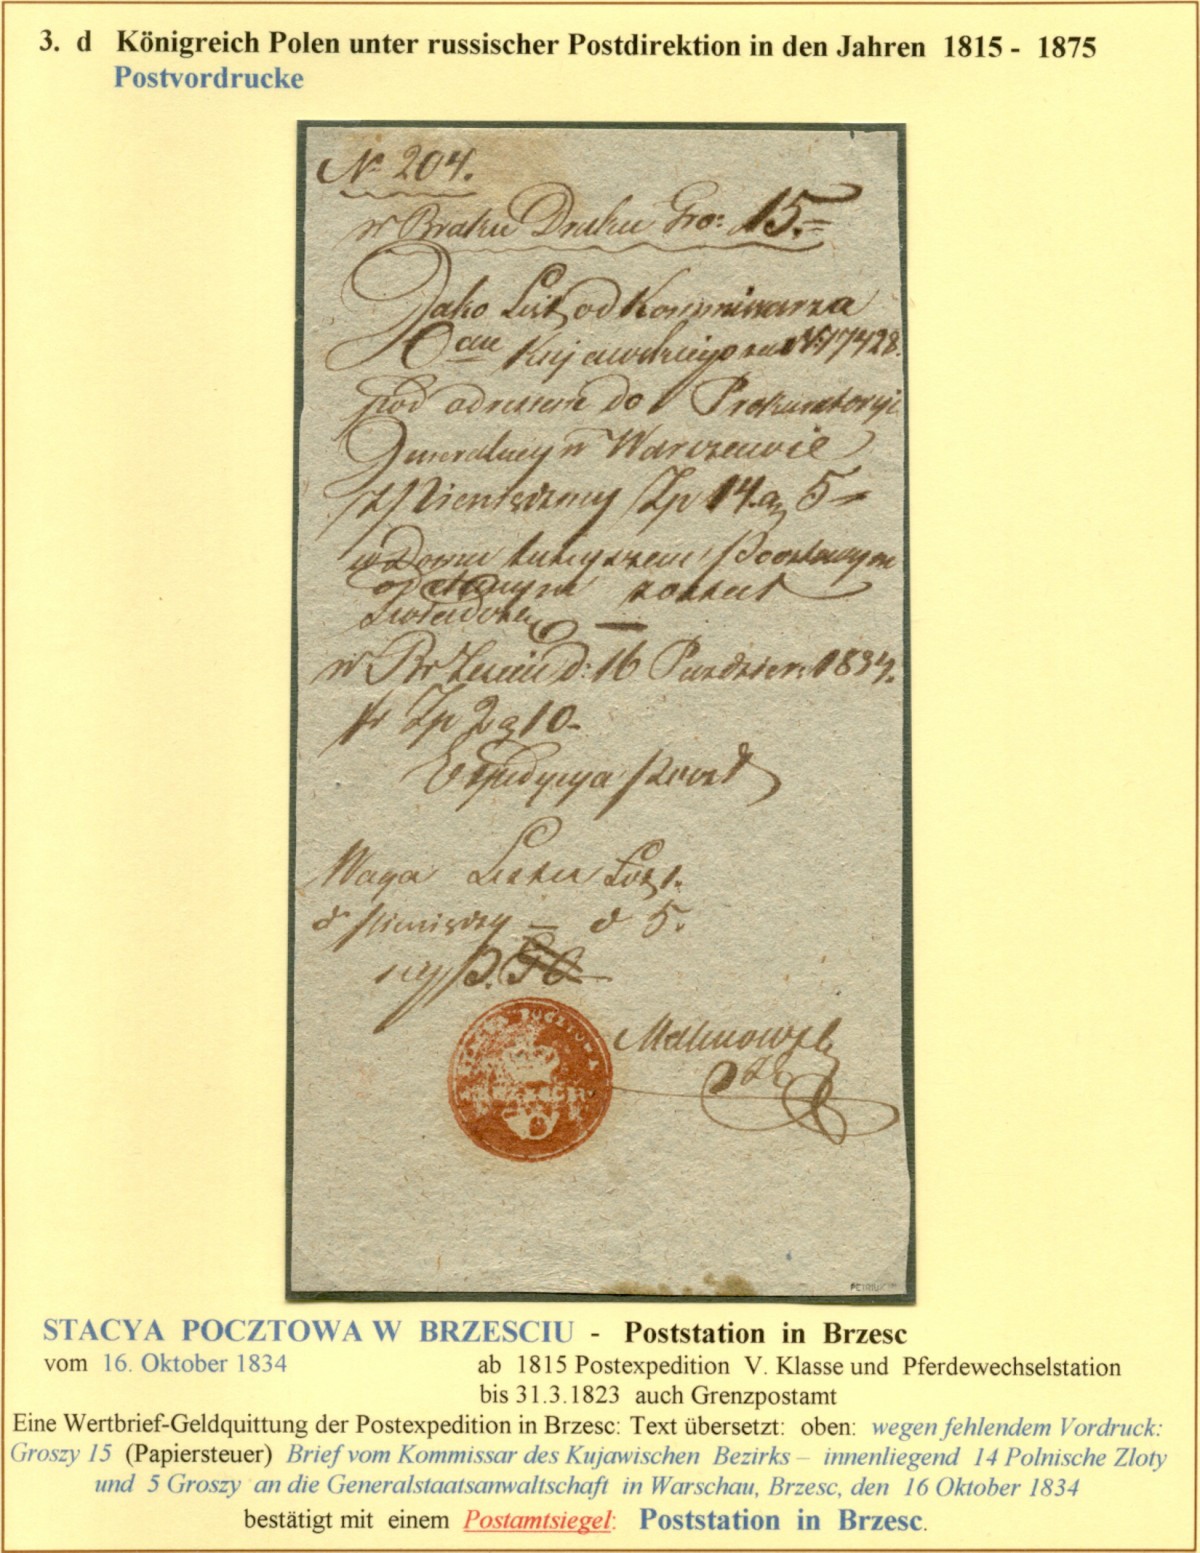 3. d Königreich Polen unter russischer Postdirektion in den Jahren 1815 - 1875
Postvordrucke
No 204.
w Braku Druku Gro: 15.=
Jako List od Kommissarza
Kujawskiego za No 17428.
pod adressem do Prokuratoryi
Generalney w Warszawie
z Pieniędzmy Zp 14. g 5
w Domu tuteyszem Pocztowym
oddanym został
w Brześciu d: 16 Październ: 1834.
Zp 2 g 10-
Expedycya Poczt
Waga Listu Łót 1.
d Pieniędzy — d 5.
POCZTOWA
Malinowski
STACYA POCZTOWA W BRZESCIU - Poststation in Brzesc
vom 16. Oktober 1834
ab 1815 Postexpedition V. Klasse und Pferdewechselstation
bis 31.3.1823 auch Grenzpostamt
Eine Wertbrief-Geldquittung der Postexpedition in Brzesc: Text übersetzt: oben: wegen fehlendem Vordruck:
Groszy 15 (Papiersteuer) Brief vom Kommissar des Kujawischen Bezirks – innenliegend 14 Polnische Zloty
und 5 Groszy an die Generalstaatsanwaltschaft in Warschau, Brzesc, den 16 Oktober 1834
bestätigt mit einem Postamtsiegel: Poststation in Brzesc.